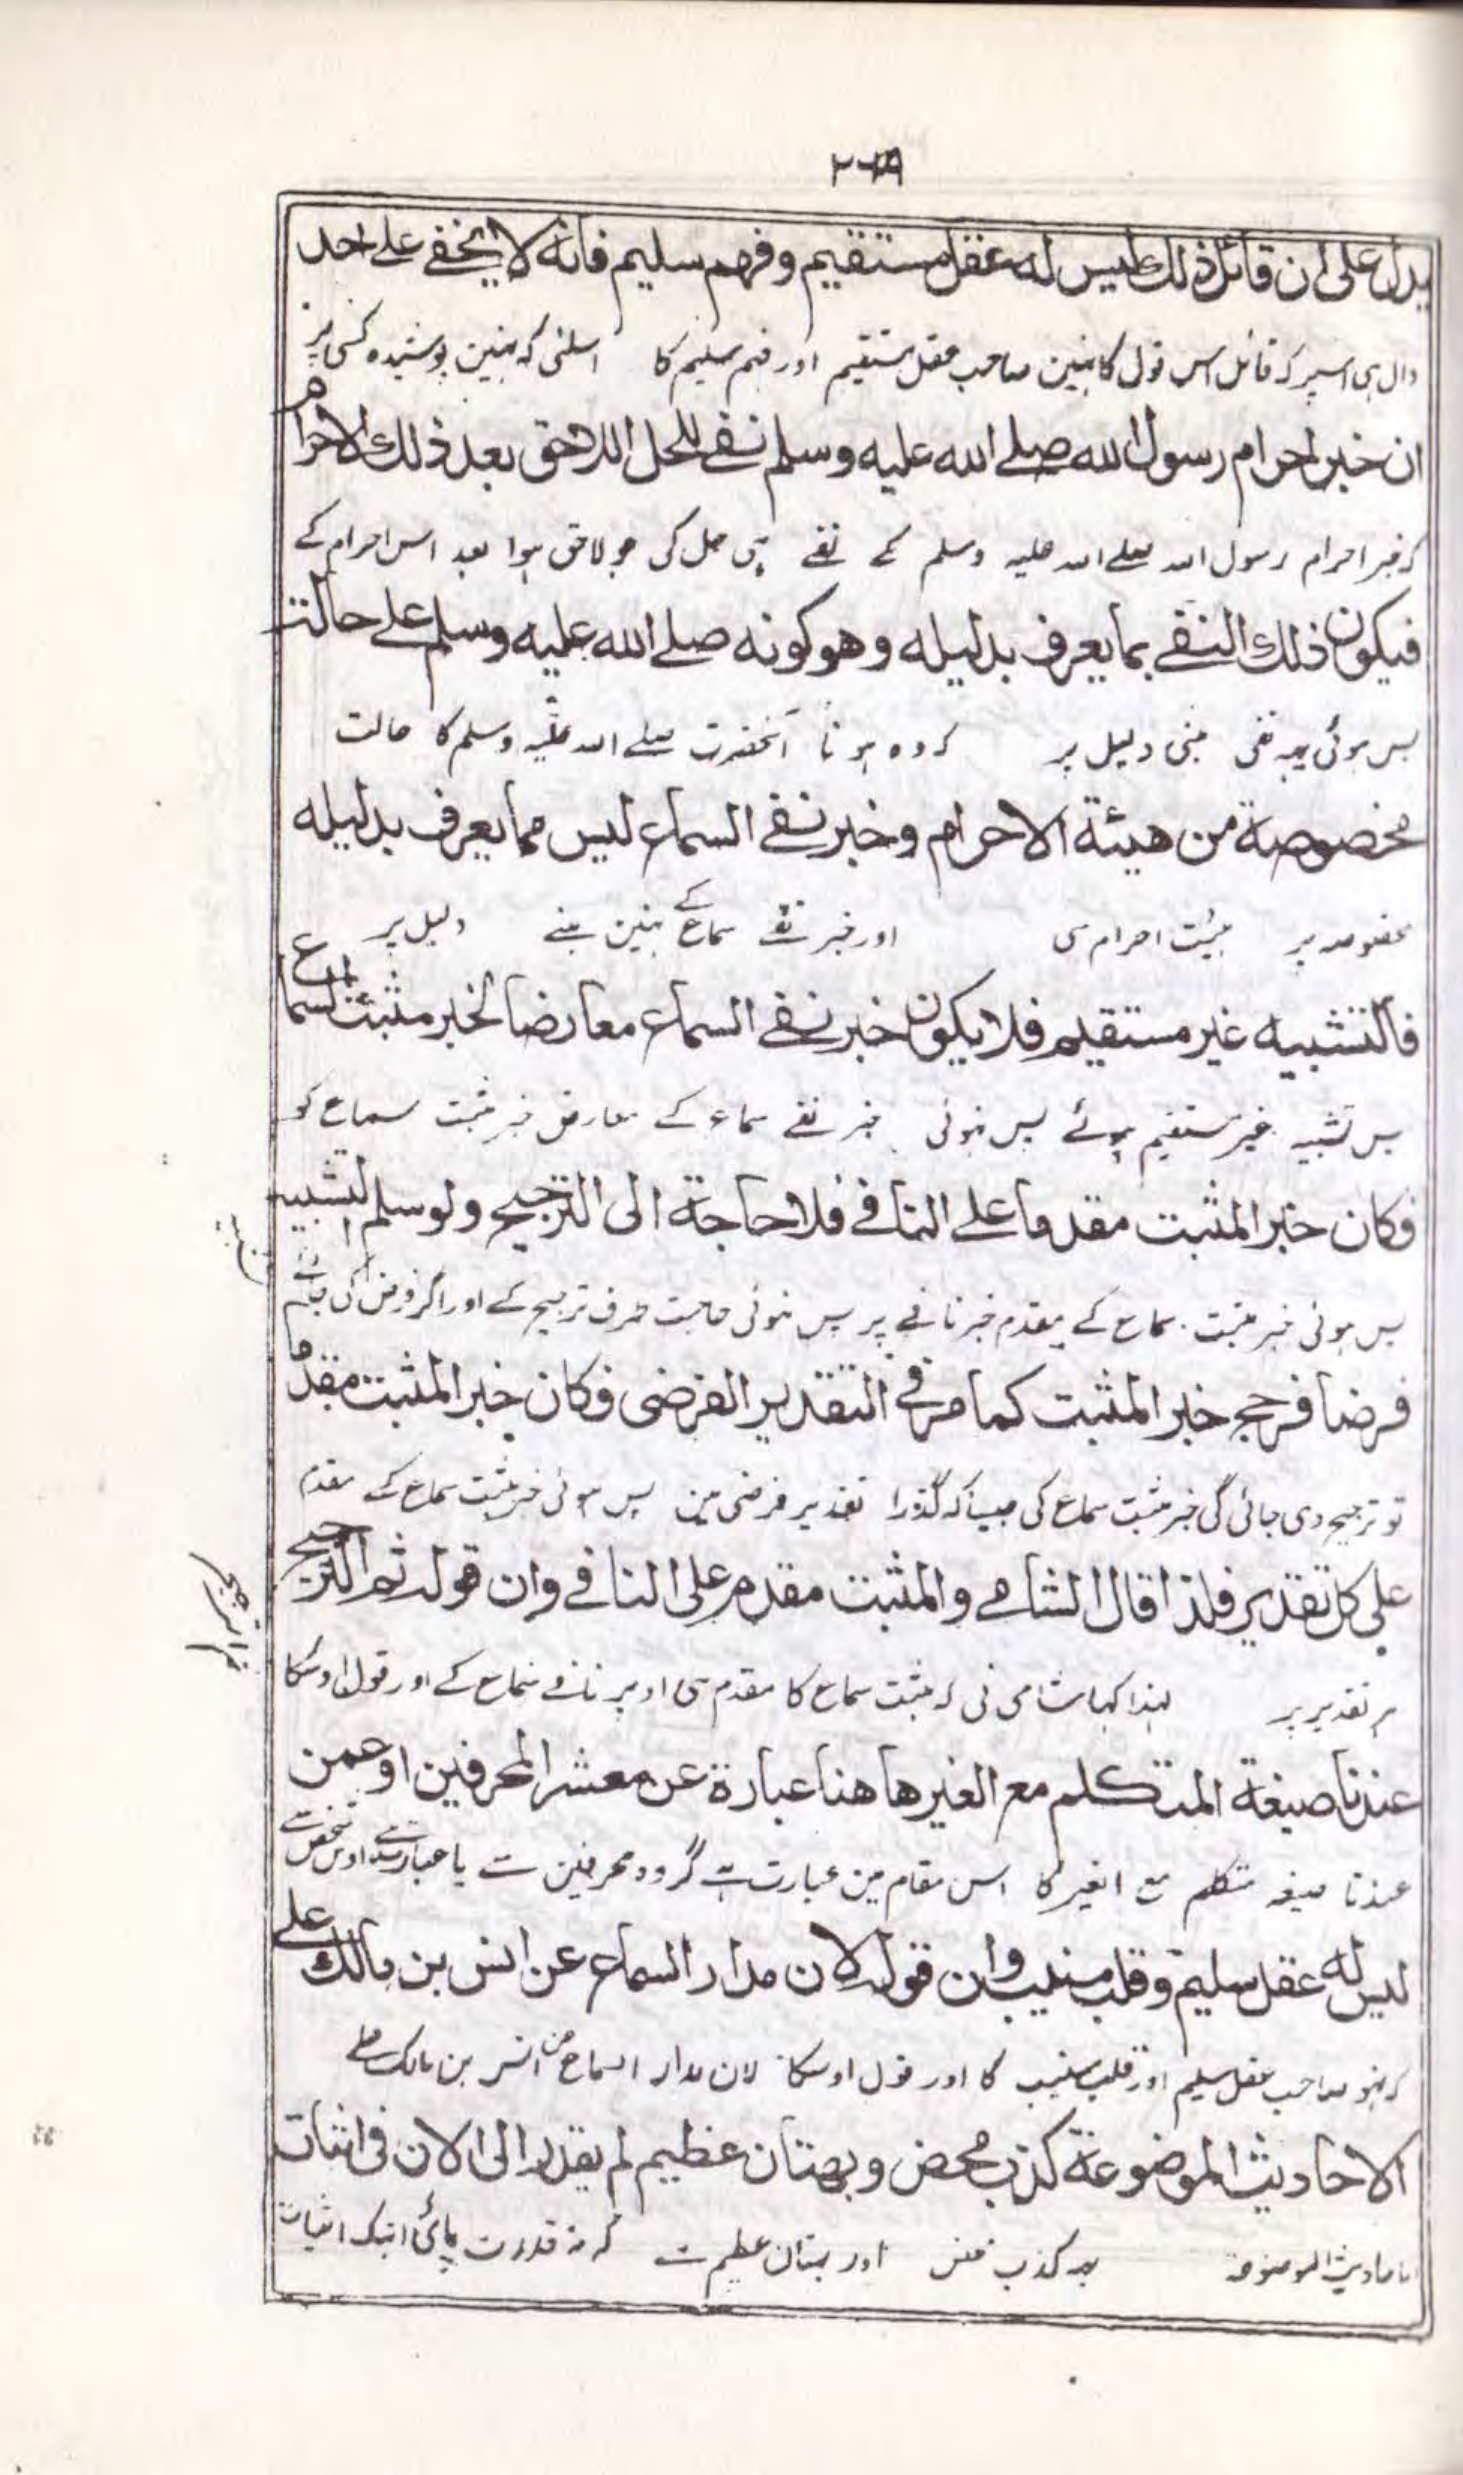 يدل على ان قائل ذلك ليس له عقل مستقيم وفهم سليم فانه لا يخفے علے احد
دال ہی اسپر کہ قائل اس قول کا نہین صاحب عقل مستقیم اور فہم سلیم کا اسلئی کہ نہین پوشیدہ کسی پر
ان خبر احرام رسول الله صلے الله عليه وسلم نفے للحل اللاحق بعد ذلك الاحرام
کہ خبر احرام رسول اللہ صلے اللہ علیہ وسلم کے نفے ہی حل کی جو لاحق ہوا بعد اس احرام کے
فيكون ذلك النفے بما يعرف بدليله وهو كونه صلے الله عليه وسلم علے حالت
پس ہوئی یہہ نفی مبنی دلیل پر کہ وہ ہونا آنحضرت صلے اللہ علیہ وسلم کا حالت
مخصوصة من هيئة الاحرام وخبر نفے السماع ليس مما يعرف بدليله
مخصوصہ پر ہیئت احرام سی اور خبر نفے سماع کے نہین مبنے دلیل پر
فالتشبيه غير مستقيم فلا يكون خبر نفے السماع معارضا لخبر مثبت السماع
پس تشبیہ غیر مستقیم ہوئے پس نہوئی خبر نفے سماع کے معارض خبر مثبت سماع کو
فكان خبر المثبت مقدما على النافے فلا حاجة الى الترجيح ولو سلم التشبيه
پس ہوئی خبر مثبت سماع کے مقدم خبر نافے پر پس نہوئی حاجت طرف ترجیح کے اور اگر فرض کی جائے
فرضا فرجح خبر المثبت كما مر في التقدير الفرضى فكان خبر المثبت مقدما
تو ترجیح دی جائی گی خبر مثبت سماع کی جیساکہ گذرا تقدیر فرضی مین پس ہوئی خبر مثبت سماع کے مقدم
على كل تقدير فلذا قال الشامے والمثبت مقدم على النافے وان قوله ثم الترجيح
ہر تقدیر پر لہذا کہا شامی نی کہ مثبت سماع کا مقدم ہی اوپر نافے سماع کے اور قول اوسکا
ثم الترجیح
عندنا صيغة المتكلم مع الغير هاهنا عبارة عن معشر المحرفين او عمن
عندنا صیغہ متکلم مع الغیر کا اس مقام مین عبارت ہے گروہ محرفین سے یا عبارت ہے اوس شخص سے
ليس له عقل سليم وقلب منيب وان قوله لان مدار السماع عن انس بن مالك علے
کہ نہو صاحب عقل سلیم اور قلب منیب کا اور قول اوسکا لان مدار السماع عن انس بن مالک علے
الاحاديث الموضوعة كذب محض وبهتان عظيم لم يقدر الى الان فى اثبات
الاحادیث الموضوعۃ یہ کذب محض اور بہتان عظیم ہے کہ نہ قدرت پائی ابتک اثبات